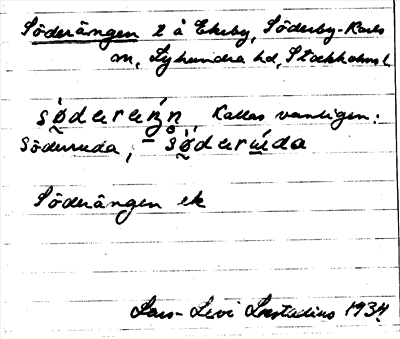 Söderängen t å Ekeby, Söderby-Karls
sn, Lyhundra hd, Stockholms l.
Kallas vanligen:
Söderunda, –
Söderängen ek
Lars-Levi Læstadius 1934.